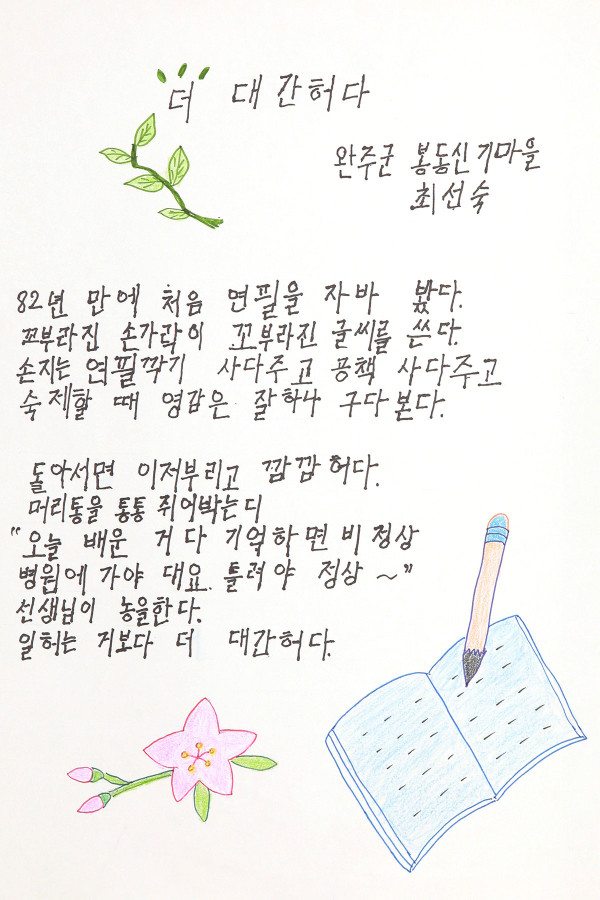 더 대간허다
완주군 봉동신기마을
최선숙
82년 만에 처음 연필을 자바 봤다.
꼬부라진 손가락이 꼬부라진 글씨를 쓴다.
손지는 연필깍기 사다주고 공책 사다주고
숙제할 때 영감은 잘하나 구다본다.
돌아서면 이저부리고 깜깜허다.
머리통을 통통 쥐어박는디
"오늘 배운 거 다 기억하면 비정상
병원에 가야 대요. 틀려야 정상 ~"
선생님이 농을한다.
일허는 거보다 더 대간허다.